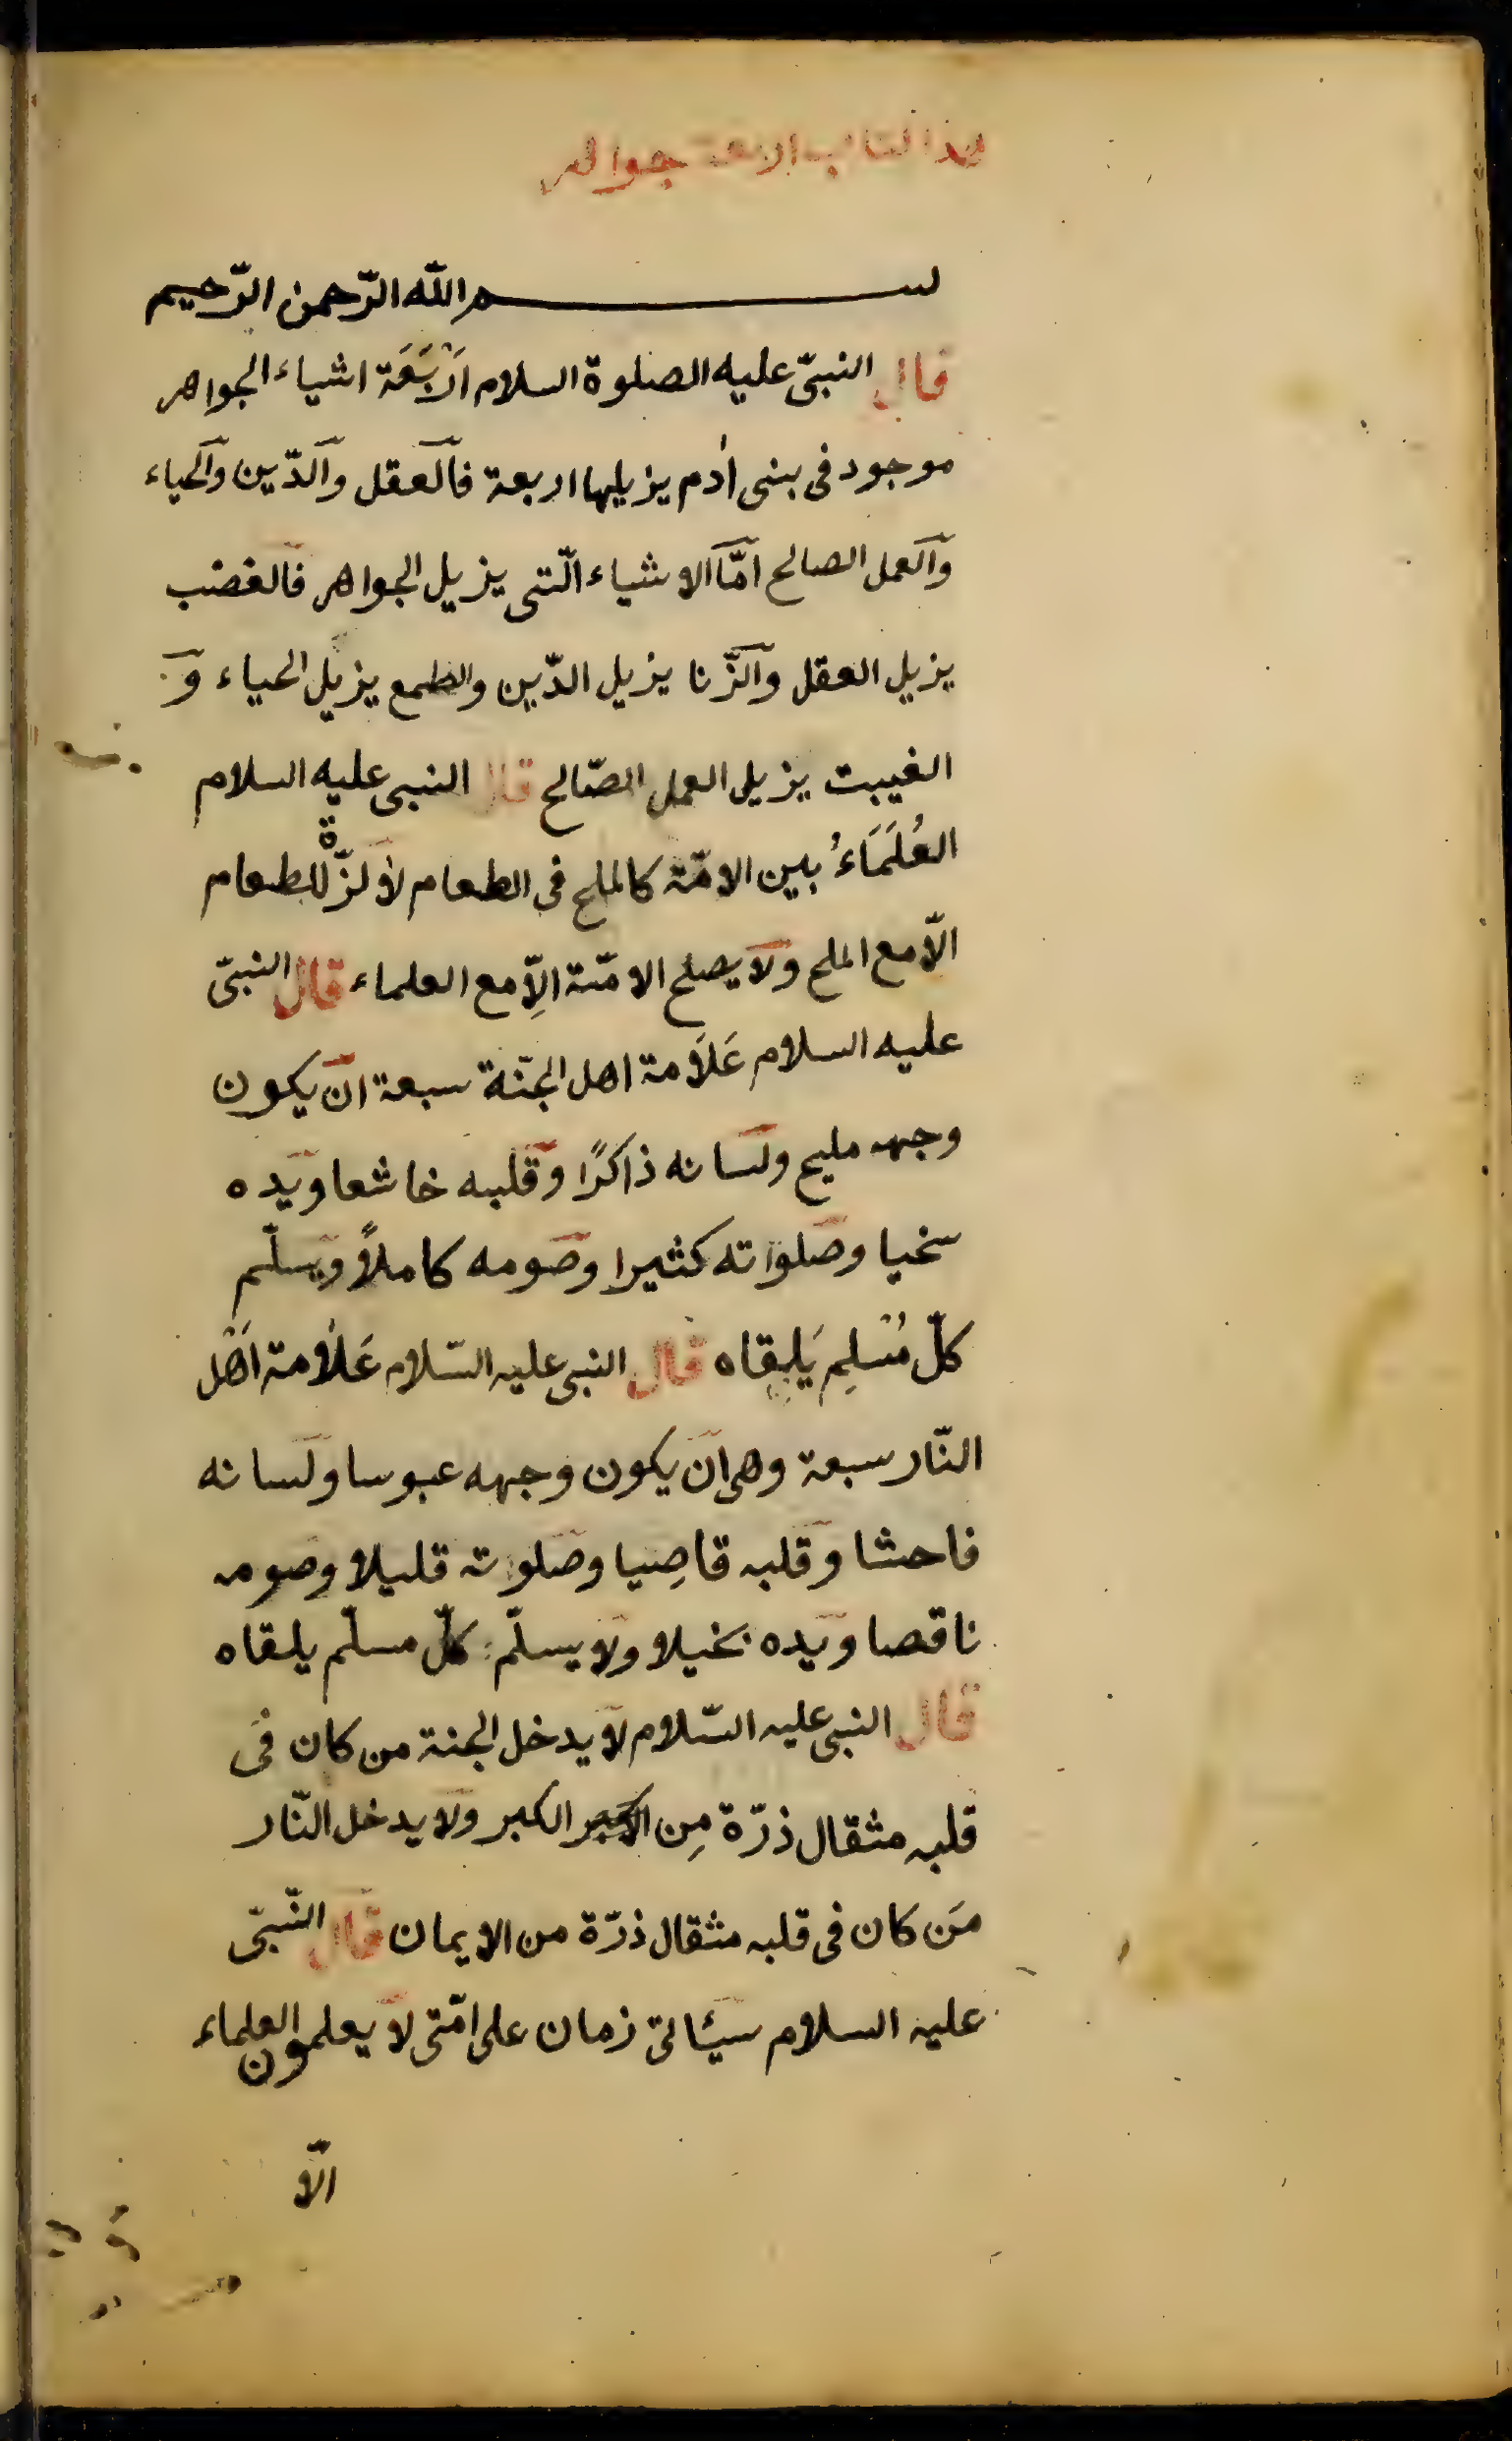 هذا كتاب اربعة جواهر
بسم الله الرّحمن الرّحيم
قال النبىّ عليه الصلوة السلام اَرْبَعَة اشياء الجواهر
موجود فى بنى اٰدم يزيلها اربعة فالعقل والدّين والحياء
والعمل الصالح امّا الاشياء الّتى يزيل الجواهر فالغضب
يزيل العقل والزّنا يزيل الدّين والطمع يزيل الحياء وَ
الغيبت يزيل العمل الصّالح قال النبى عليه السلام
العُلَمَاءُ بين الامّة كالملح فى الطعام لا لزّة للطعام
الّا مع الملح ولا يصلح الامّة اِلّا مع العلماء قال النبىّ
عليه السلام عَلَامة اهل الجنّة سبعة ان يكون
وجهه مليح ولسانه ذاكرًا وقلبه خاشعا ويده
سخيا وصلواته كثيرا وصومه كاملاً ويسلّم
كلّ مُسْلِم يَلِقاه قال النبى عليه السّلام عَلَامة اَهْل
النّار سبعة وهى ان يكون وجهه عبوسا ولسانه
فاحشا وقلبه قاصِيا وصلوته قليلا وصومه
ناقصا ويده بخيلا ولا يسلّم كلّ مسلّم يلقاه
قال النبى عليه السّلام لا يدخل الجنة من كان فى
قلبه مثقال ذرّة مِن الكبر ولا يدخل النّار
مَن كان فى قلبه مثقال ذرّة من الايمان قال النّبىّ
عليه السلام سيئاتى زمان على امّتى لا يعلمون العلماء
الّا